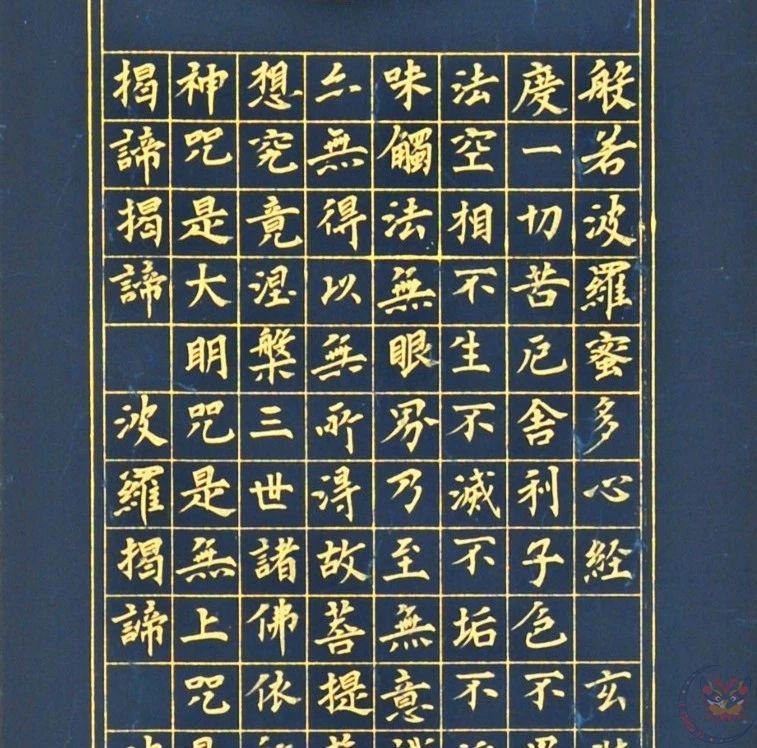 般若波羅蜜多心経 玄
度一切苦厄舎利子色不
法空相不生不滅不垢不
味觸法無眼界乃至無意
亦無得以無所得故菩提
想究竟涅槃三世諸佛依
神咒是大明咒是無上咒
揭諦揭諦 波羅揭諦